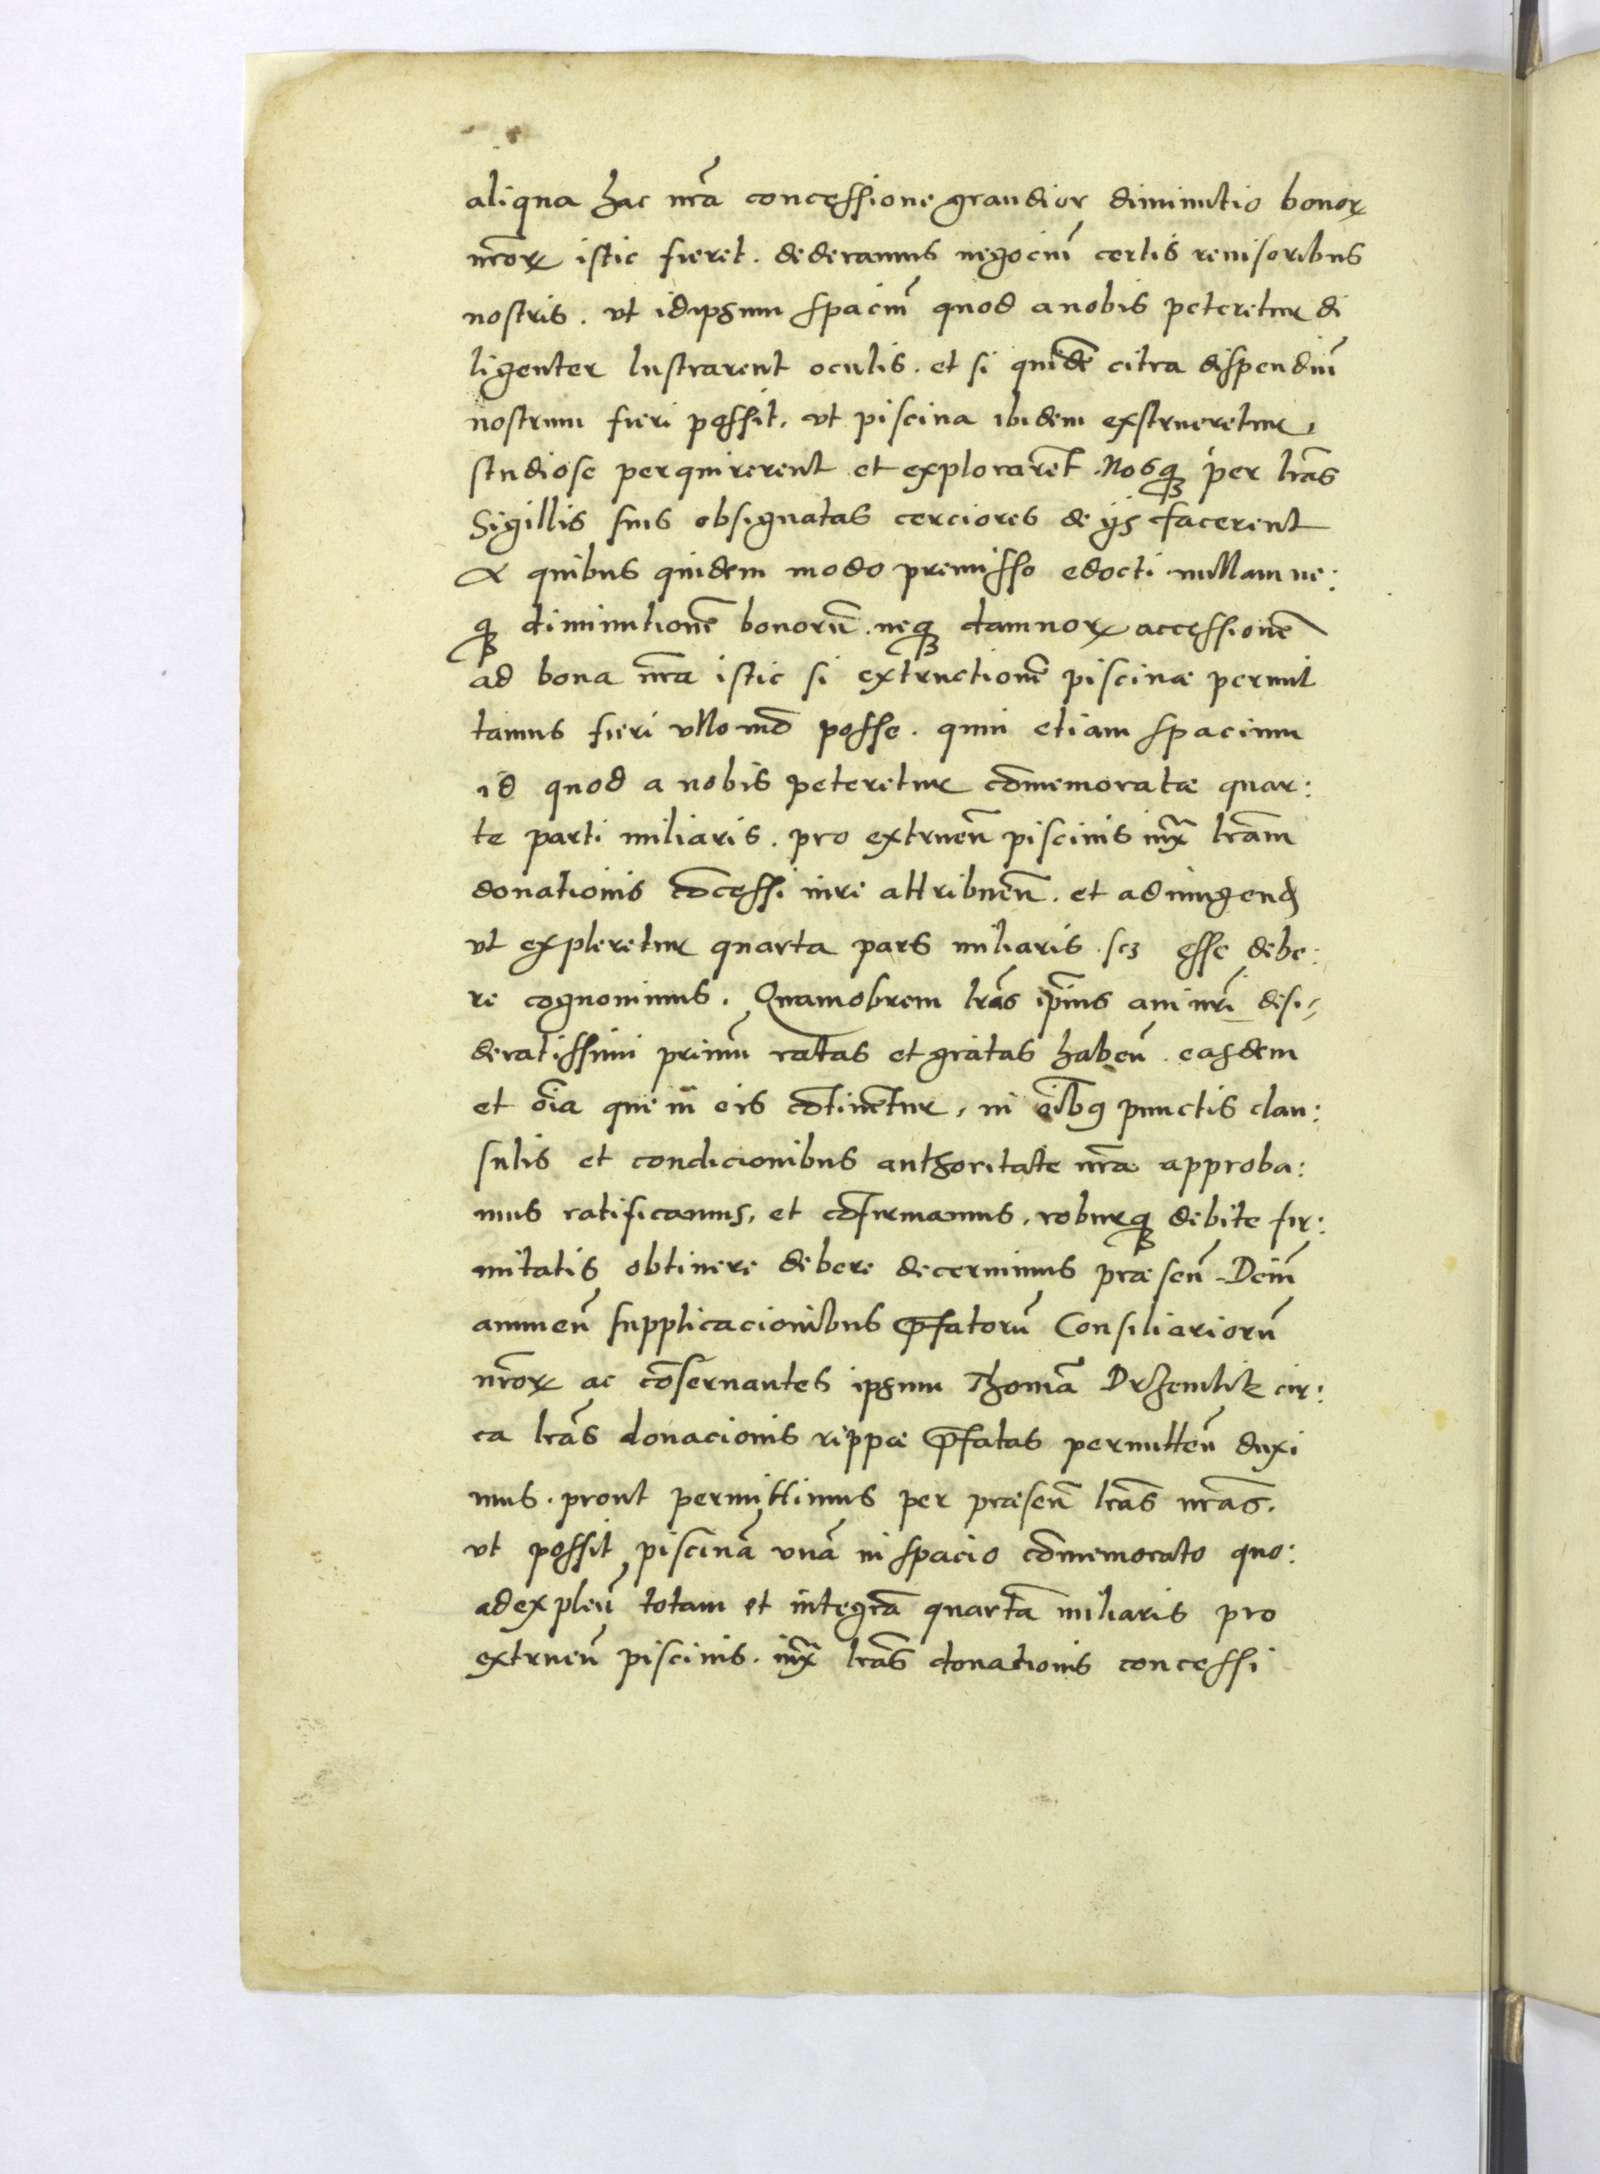 aliqua hac nr̃a concessione grandior diminutio bonoꝝ
nr̃oꝝ istic fieret. dederamus negociũ certis reuisoribus
nostris. vt idipsum spaciũ quod a nobis peteretur di
ligenter lustrarent oculis. et si quidẽ citra dispendiũ
nostrum fieri possit. vt piscina ibidem exstrueretur,
studiose perquirerent et explorarẽt. Nosqꝫ per lr̃as
Sigillis suis obsignatas cerciores de ijs facerent
Ex quibus quidem modo premisso edocti nullam ne:
qꝫ diminutionẽ bonorũ. neqꝫ damnoꝝ accessionẽ
ad bona nr̃a istic si extructionẽ piscinæ permit
tamus fieri vllo mõ posse. quin etiam spacium
id quod a nobis peteretur cõmemoratæ quar:
te parti miliaris. pro extruen̄ piscinis iux̃ lr̃am
donationis cõcessi iure attribuen̄. et adiungend̄
vt expleretur quarta pars miliaris. scꝫ esse debe:
re cognouimus. Quamobrem lr̃as ip̃ius aui nr̃i desi:
deratissimi primũ ratas et gratas haben̄. easdem
et õia que in̄ eis cõtinẽtur, in õibꝰ punctis clau:
sulis et condicionibus authoritate nr̃a approba:
mus ratificamus, et cõfirmamus, roburqꝫ debite fir:
mitatis obtinere debere decernimus præsen̄. Dein̄
annuen̄ supplicacionibus p̱fatorũ Consiliariorũ
nr̃oꝝ ac cõseruantes ipsum Thomã Drzewliz cir:
ca lr̃as donacionis rippæ p̱fatas permitten̄ duxi
mus. prout permittimus per præsen̄ lr̃as nr̃as.
vt possit piscinã vnã in spacio cõmemorato quo:
ad explen̄ totam et integrã quartã miliaris pro
extruen̄ piscinis. iux̃ lr̃as donationis concessi